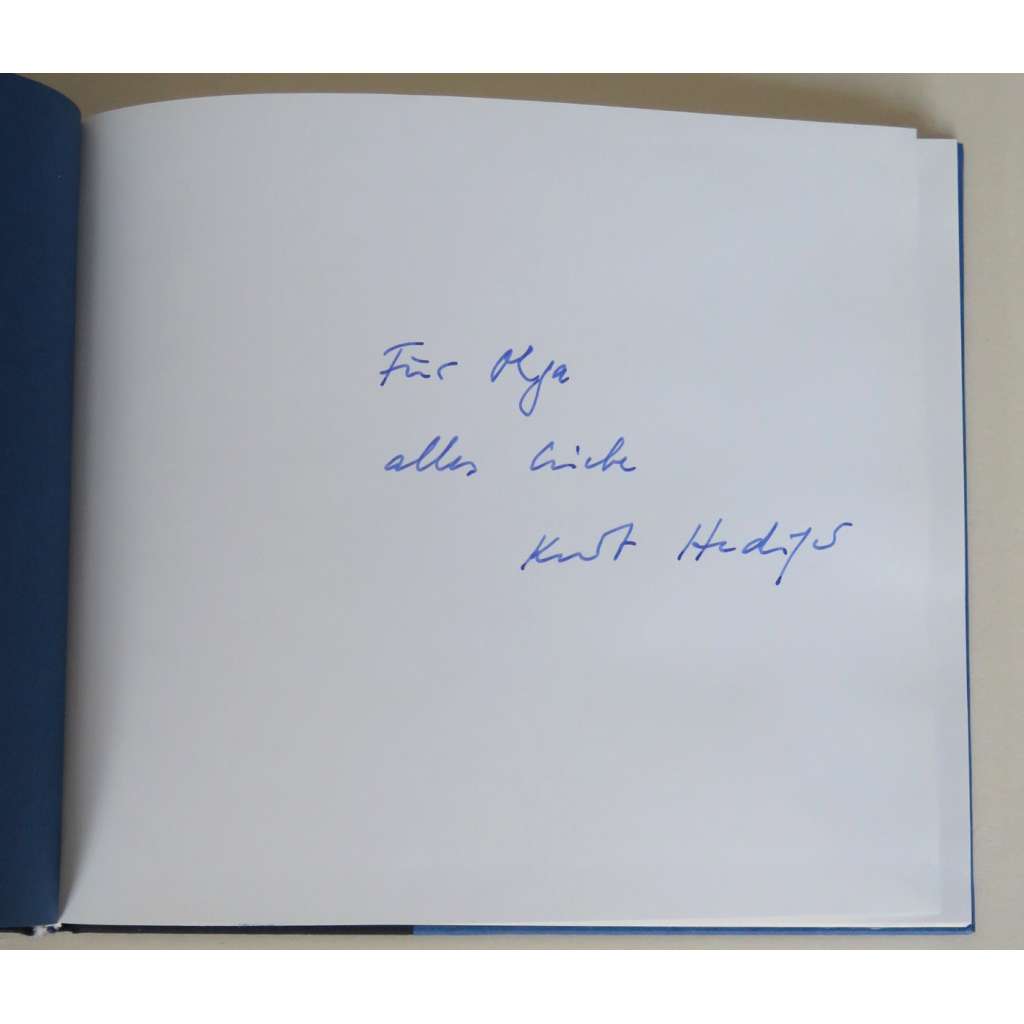 Für Olga
alles Liebe
Kurt Hediger